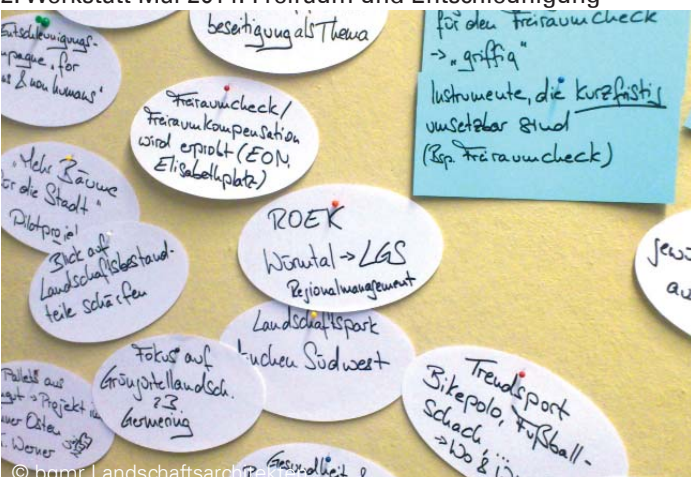 2. Werkstatt Mai 2014: Freiraum und Entschleunigung
Entschleunigungs-
"for
& non humans"
beseitigung als Thema
für den Freiraumcheck
-> "griffig"
Instrumente, die kurzfristig
umsetzbar sind
(Bsp. Freiraumcheck)
Freiraumcheck/
Freiraumkompensation
wird erprobt (EON,
Elisabethplatz)
"Mehr Bäume
für die Stadt"
Pilotprojet
Blick auf
Landschaftsbestand-
teile schärfen
ROEK
Würmtal -> LGS
Regionalmanagement
Landschaftspark
München Südwest
Fokus auf
Grüngürtellandsch.
z.B.
Germering
Paletts aus
-> Projekt
Osten
Werner
Trendsport
Bikepolo, Fußball-
Schach ...
-> Wo &
Gesundheit &
© bgmr Landschaftsarchitekten